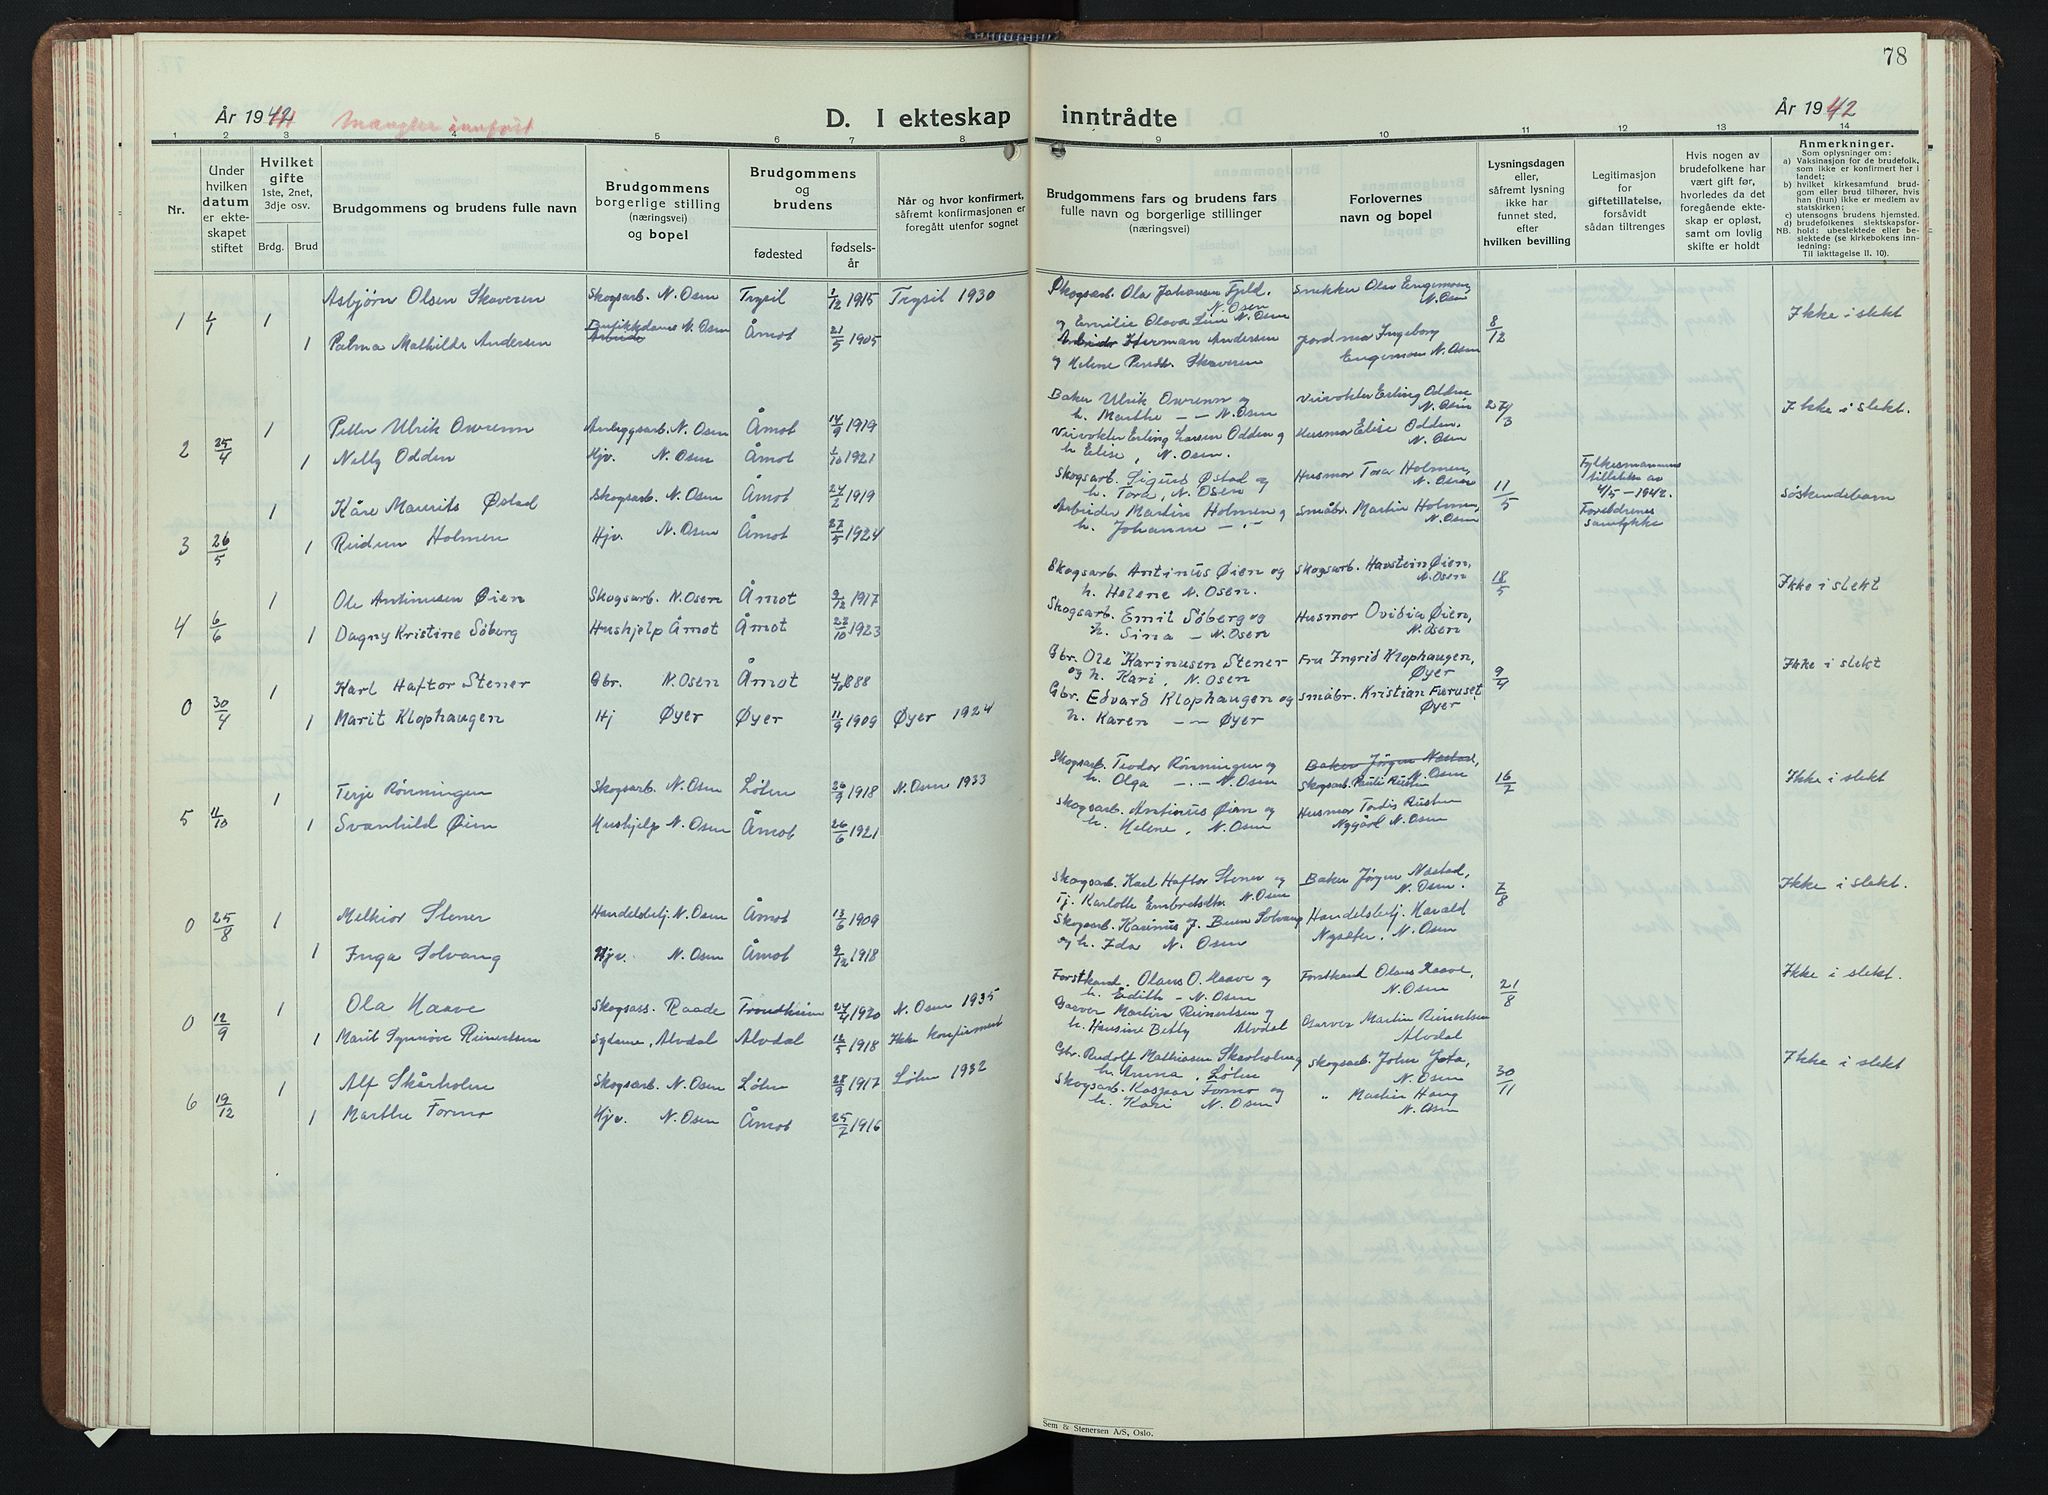 78
År 1942
D. I ekteskap inntrådte
År 1942
1 2 3 4 5 6 7 8 9 10 11 12 13 14
Nr.
Under hvilken datum er ekteskapet stiftet
Hvilket gifte
1ste, 2net, 3dje osv.
Brdg. Brud
Brudgommens og brudens fulle navn
Brudgommens borgerlige stilling (næringsvei) og bopel
Brudgommens og brudens
fødested
fødselsår
Når og hvor konfirmert, såfremt konfirmasjonen er foregått utenfor sognet
Brudgommens fars og brudens fars fulle navn og borgerlige stillinger (næringsvei)
Forlovernes navn og bopel
Lysningsdagen eller, såfremt lysning ikke har funnet sted, efter hvilken bevilling
Legitimasjon for giftetillatelse, forsåvidt sådan tiltrenges
Hvis nogen av brudefolkene har vært gift før, hvorledes da det foregående ekteskap er opløst, samt om lovlig skifte er holdt
Anmerkninger.
Som oplysninger om:
a) Vaksinasjon for de brudefolk, som ikke er konfirmert her i landet;
b) hvilket kirkesamfund brudgom eller brud tilhører, hvis han (hun) ikke er medlem av statskirken;
c) utensogns brudens hjemsted.
d) brudefolkenes slektskapsforhold: ubeslektede eller beslektede (se kirkebokens innledning:
NB. Til iakttagelse II. 10).
1 1/1 1 Asbjörn Olsen Skaveren Skogsarb. N. Osen Trysil 1/12 1915 Trysil 1930 Skogsarb. Ola Johansen Fjeld, N. Osen og Emilie Olava Lien N. Osen Snekker Olav Engemoen, N. Osen 8/12 Ikke i slekt
1 Palma Mathilde Andersen N. Osen Åmot 21/5 1905 Herman Andersen og Helene Skaveren Jordmor Ingeborg Engemoen N. Osen
2 25/4 1 Petter Ulrik Owrenn Anleggsarb. N. Osen Åmot 14/9 1919 Baker Ulrik Owrenn og h. Marthe – – N. Osen Erling Odden N. Osen 27/3 Ikke i slekt.
1 Nelly Odden Hjv. N. Osen Åmot 1/10 1921 Erling Larsen Odden og h. Elise, N. Osen. Husmor Elise Odden, N. Osen
3 26/5 1 Kåre Maurits Østad Skogsarb. N. Osen Åmot 24/2 1919 Skogsarb. Sigurd Østad og h. Tora, N. Osen Husmor Tora Holmen, N. Osen 11/5 Fylkesmannens tillatelse av 4/5 – 1942. Foreldrenes samtykke Søskendebarn
1 Reidun Holmen Hjv. N. Osen Åmot 27/5 1924 Arbeider Martin Holmen og h. Johanne – " – Småbr. Martin Holmen, N. Osen
4 6/6 1 Ole Antinusen Øien Skogsarb. N. Osen Åmot 9/12 1917 Skogsarb. Antinus Øien og h. Helene N. Osen. Skogsarb. Havstein Øien, N. Osen 18/5 Ikke i slekt
1 Dagny Kristine Söberg Hushjelp Åmot Åmot 22/10 1923 Skogsarb. Emil Söberg og h. Sina – N. Osen Husmor Ovidia Øien, N. Osen
0 30/4 1 Karl Haftor Stener Gbr. N. Osen Åmot 4/10 1888 Gbr. Ole Karinusen Stener og h. Kari, N. Osen Fru Ingrid Klophaugen, Øyer 9/4 Ikke i slekt
1 Marit Klophaugen Hj Øyer Øyer 11/9 1909 Øyer 1924 Gbr. Edvard Klophaugen og h. Karen – – Øyer Småbr. Kristian Furuset, Øyer
5 11/10 1 Terje Rönningen Skogsarb. N. Osen Löten 26/9 1918 N. Osen 1933 Skogsarb. Teodor Rönningen og h. Olga – " – N. Osen Baker Jørgen Næstad, N. Osen Skogsarb. 16/2 Ikke i slekt
1 Svanhild Øien Hushjelp N. Osen Åmot 26/6 1921 Skogsarb. Antinus Øien og h. Helene, N. Osen Husmor Tordis Rusten Nygård N. Osen
0 25/8 1 Melkior Stener Handelsbetj. N. Osen Åmot 13/6 1909 Skogsarb. Karl Haftor Stener og Tj. Karlotte Embretsdtr. N. Osen Baker Jørgen Næstad, N. Osen. 7/8 Ikke i slekt.
1 Inga Solvang Hjv. N. Osen Åmot 9/12 1918 Skogsarb. Karinus J. Buen Solvang og h. Ida N. Osen Handelsbetj. Harald Nysæter, N. Osen
0 12/9 1 Ola Haave Skogsass. Raade Trondheim 24/4 1920 N. Osen 1935 Forstkand. Olaus O. Haave og h. Edith – N. Osen Forstkand Olaus Haave, N. Osen 21/8 Ikke i slekt.
1 Marit Synnöve Reinertsen Sydame, Alvdal Alvdal 12/5 1918 Ikke konfirmert Garver Martin Reinertsen og h. Hansine Betty Alvdal Garver Martin Reinertsen Alvdal
6 19/12 1 Alf Skårholen Skogsarb. N. Osen Löten 28/9 1917 Löten 1932 Gbr. Rudolf Mathiasen Skarholen og h. Anna, Löten Skogsarb. John N. Osen 30/11 Ikke i slekt
1 Marthe Formo Hjv. N. Osen Åmot 25/7 1916 Skogsarb. Kaspar Formo og h. Kari N. Osen " Martin Haug N. Osen
Sem & Stenersen A/S, Oslo.